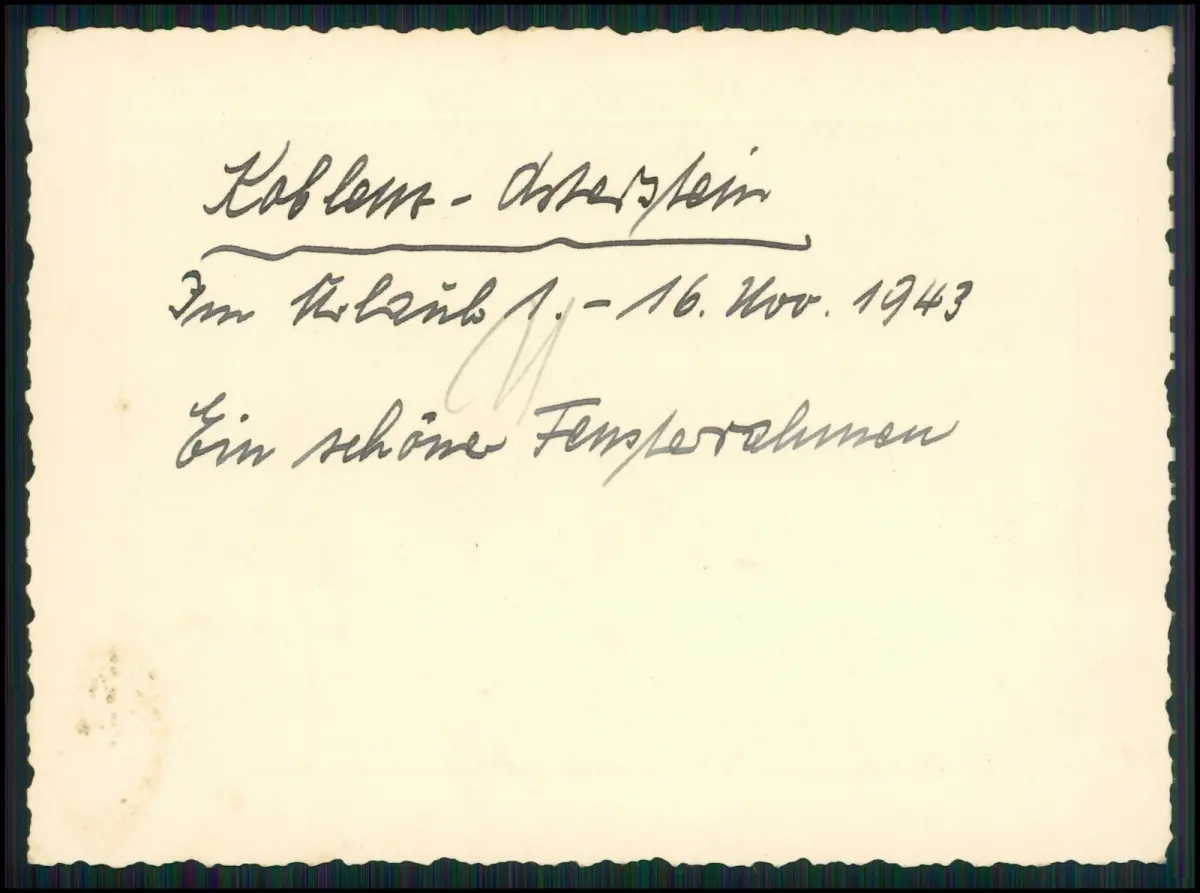 Koblenz - Asterstein
Im Urlaub 1. - 16. Nov. 1943
Ein schöner Fensterrahmen